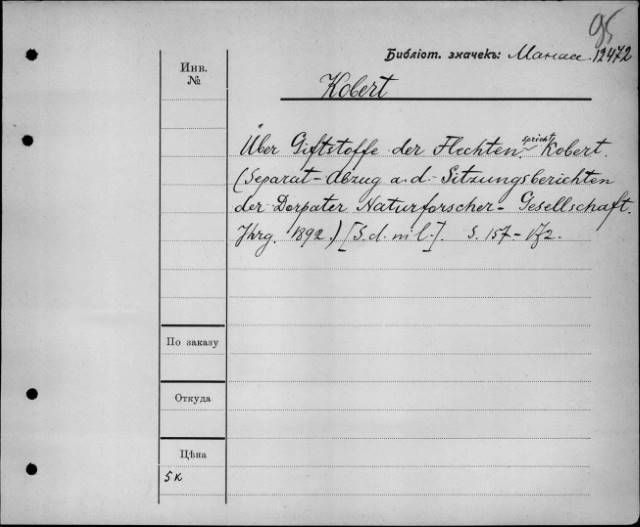 95
Библіот. значекъ: Манасс. 12472
Инв.
№
Kobert
Über Giftstoffe der Flechten. spricht Kobert.
(Separat-Abzug a. d. Sitzungsberichten
der Dorpater Naturforscher-Gesellschaft.
Jhrg. 1892.) [S. d. ni l.]. S. 157-172.
По заказу
Откуда
Цѣна
5 к